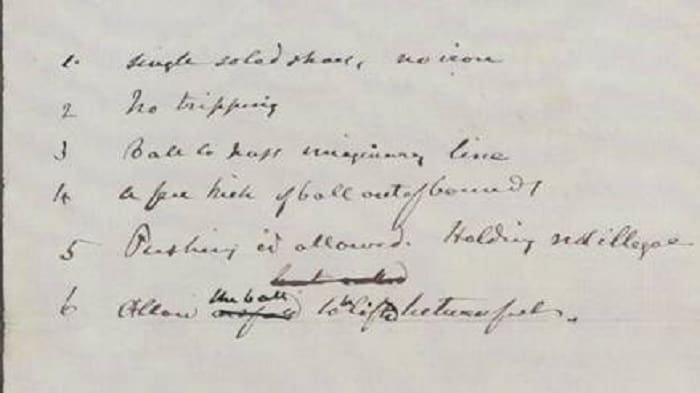 1 Single soled shoes, no iron
2 No tripping
3 Ball to pass imaginary line
4 A free kick if ball out of bounds
5 Pushing is allowed. Holding not illegal
6 Allow the ball to be lifted between feet.